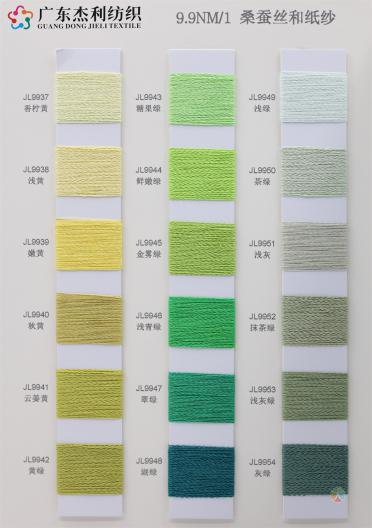 广东杰利纺织
GUANG DONG JIELI TEXTILE
9.9NM/1 桑蚕丝和纸纱
JL9937
香柠黄
JL9938
浅黄
JL9939
嫩黄
JL9940
秋黄
JL9941
云姜黄
JL9942
黄绿
JL9943
糖果绿
JL9944
鲜嫩绿
JL9945
金雾绿
JL9946
浅青绿
JL9947
翠绿
JL9948
湖绿
JL9949
浅绿
JL9950
茶绿
JL9951
浅灰
JL9952
抹茶绿
JL9953
浅灰绿
JL9954
灰绿